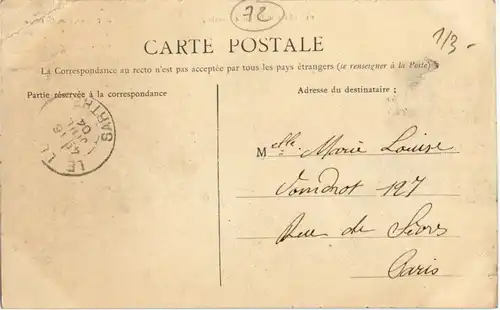 72
1/3-
CARTE POSTALE
La Correspondance au recto n'est pas acceptée par tous les pays étrangers (se renseigner à la Poste)
Partie réservée à la correspondance
Adresse du destinataire :
LE
SARTHE
16
04
Melle Marie Louise
127
Rue de
Paris